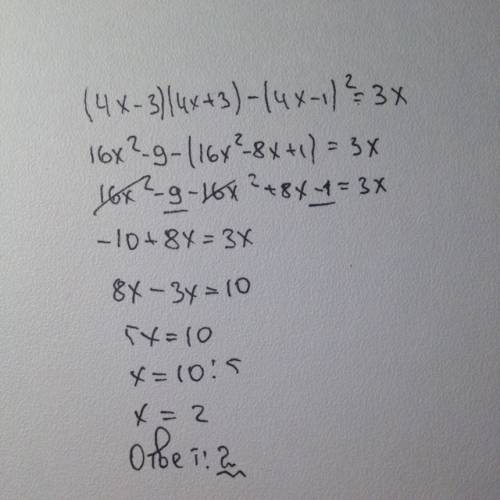 (4x-3)(4x+3)-(4x-1)²=3x
16x²-9-(16x²-8x+1)=3x
16x²-9-16x²+8x-1=3x
-10+8x=3x
8x-3x=10
5x=10
x=10:5
x=2
Ответ: 2